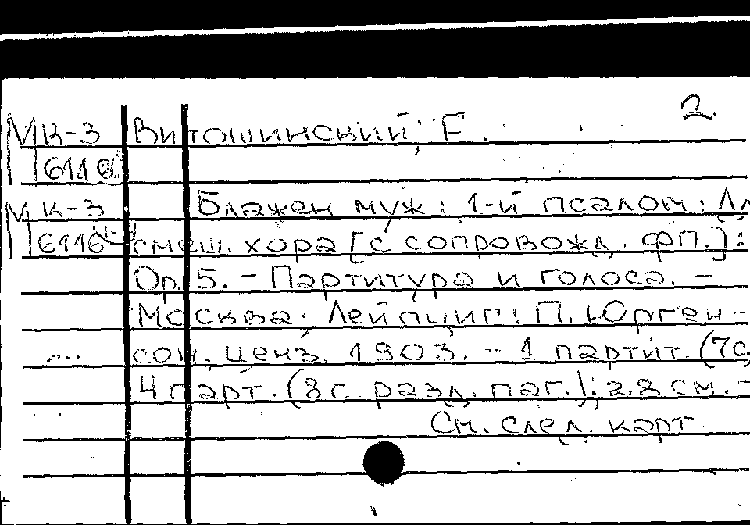 2.
МК-3 Витошинский, Е.
6116
МК-3 Блажен муж: 1-й псалом: Дл
6116 смеш. хора [с сопровожд. фп.]:
Ор. 5. - Партитура и голоса. -
Москва; Лейпциг: П. Юрген-
сон, ценз. 1903. - 1 партит. (7с
4 парт. (8 с. разд. паг.); 28 см. -
См. след. карт